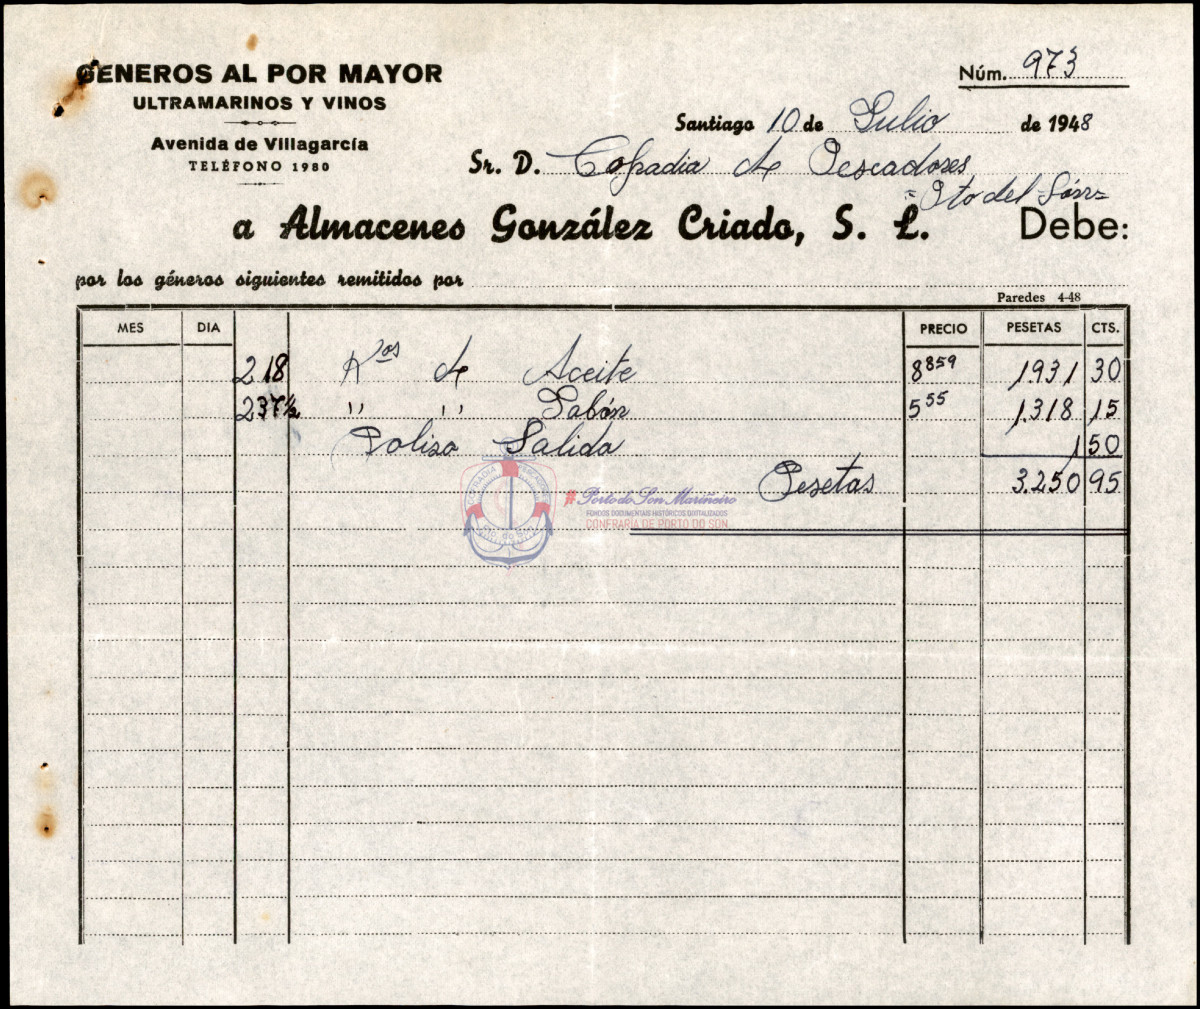 GENEROS AL POR MAYOR
ULTRAMARINOS Y VINOS
Avenida de Villagarcía
TELÉFONO 1980
Núm. 973
Santiago 10 de Julio de 1948
Sr. D. Cofradia de Pescadores
Pto del Són
a Almacenes González Criado, S. L. Debe:
por los géneros siguientes remitidos por
Paredes 4-48
MES DIA PRECIO PESETAS CTS.
218 Kos de Aceite 8859 1.931 30
237½ " " Jabón 555 1.318 15
Poliza Salida 1 50
Pesetas 3.250 95
COFRADIA PESCADORES
Pto. do Son
# Porto do Son Mariñeiro
FONDOS DOCUMENTAIS HISTÓRICOS DIXITALIZADOS
CONFRARÍA DE PORTO DO SON